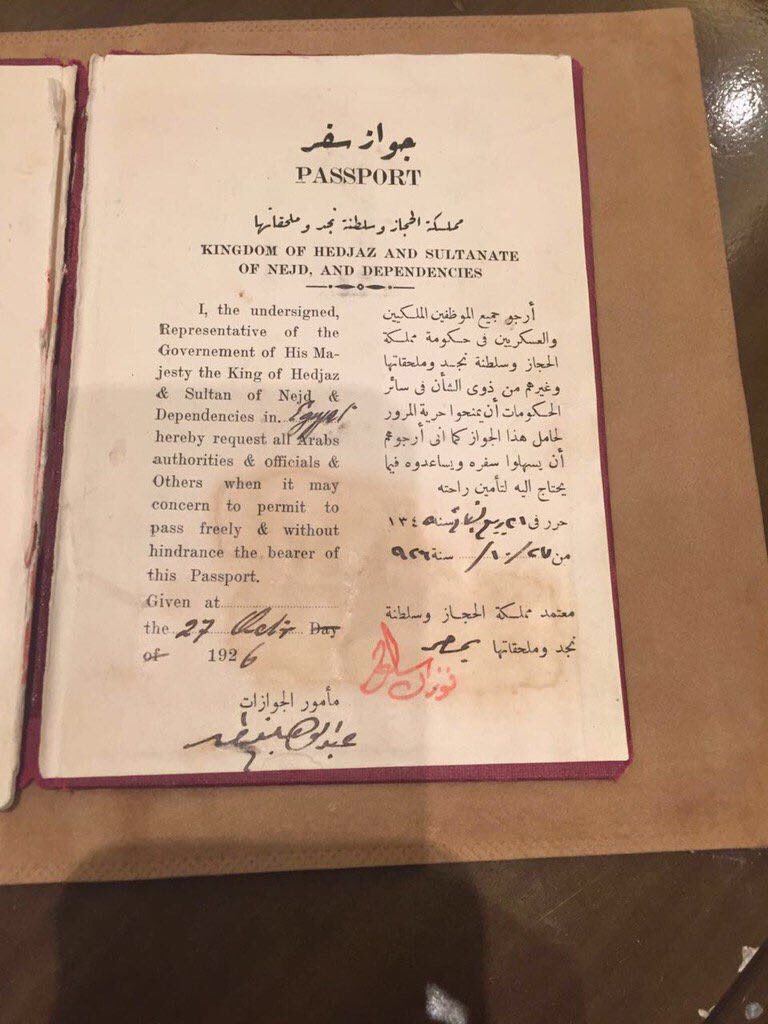 جواز سفر
PASSPORT
مملكة الحجاز وسلطنة نجد وملحقاتها
KINGDOM OF HEDJAZ AND SULTANATE
OF NEJD, AND DEPENDENCIES
I, the undersigned,
Representative of the
Governement of His Ma-
jesty the King of Hedjaz
& Sultan of Nejd &
Dependencies in Egypt
hereby request all Arabs
authorities & officials &
Others when it may
concern to permit to
pass freely & without
hindrance the bearer of
this Passport.
Given at
the 27 Day
of 1926
أرجو جميع الموظفين الملكيين
والعسكريين فى حكومة مملكة
الحجاز وسلطنة نجد وملحقاتها
وغيرهم من ذوى الشأن فى سائر
الحكومات أن يمنحوا حرية المرور
لحامل هذا الجواز كما انى أرجوهم
أن يسهلوا سفره ويساعدوه فيما
يحتاج اليه لتأمين راحته
حرر فى ٢١ ربيع سنة ١٣٤٥
من ٢٧/١٠/ سنة ٩٢٦
معتمد مملكة الحجاز وسلطنة
نجد وملحقاتها بمصر
فوزان سابق
مأمور الجوازات